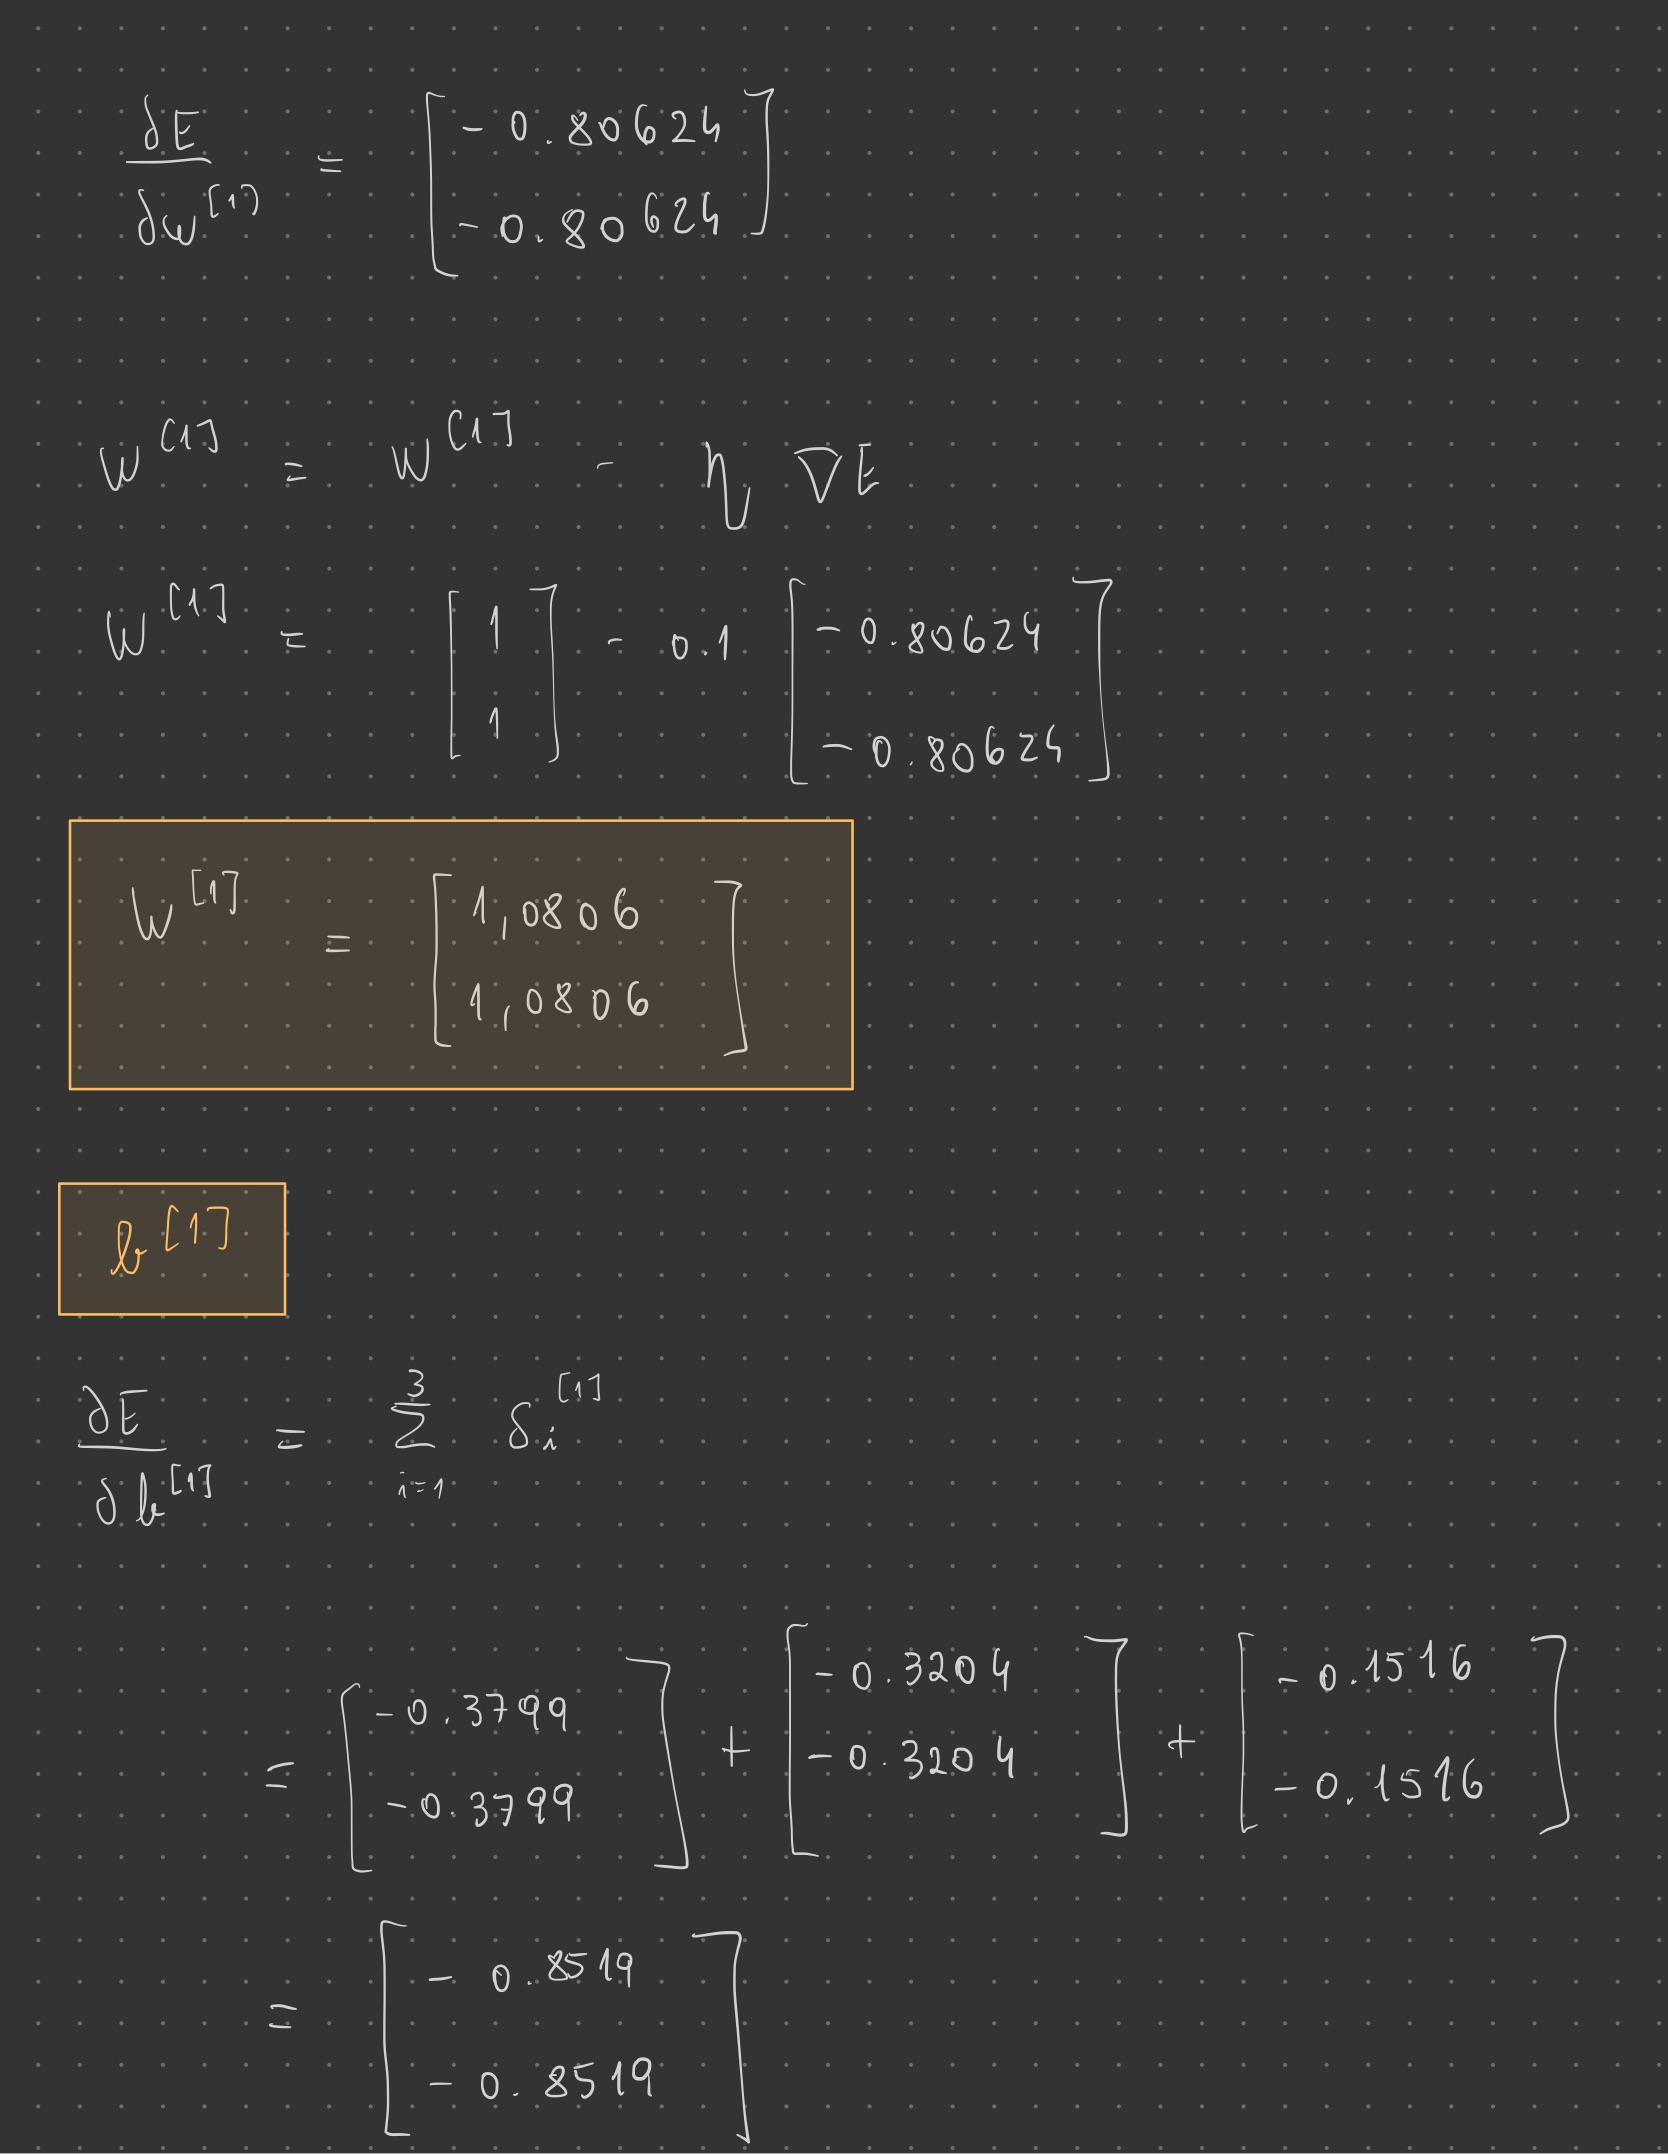 ∂E/∂w^[1] = [-0.80624
-0.80624]
W^[1] = W^[1] - η ∇E
W^[1] = [1
1] - 0.1 [-0.80624
-0.80624]
W^[1] = [1,0806
1,0806]
b^[1]
∂E/∂b^[1] = Σ_{i=1}^{3} δ_i^[1]
= [-0.3799
-0.3799] + [-0.3204
-0.3204] + [-0.1516
-0.1516]
= [-0.8519
-0.8519]